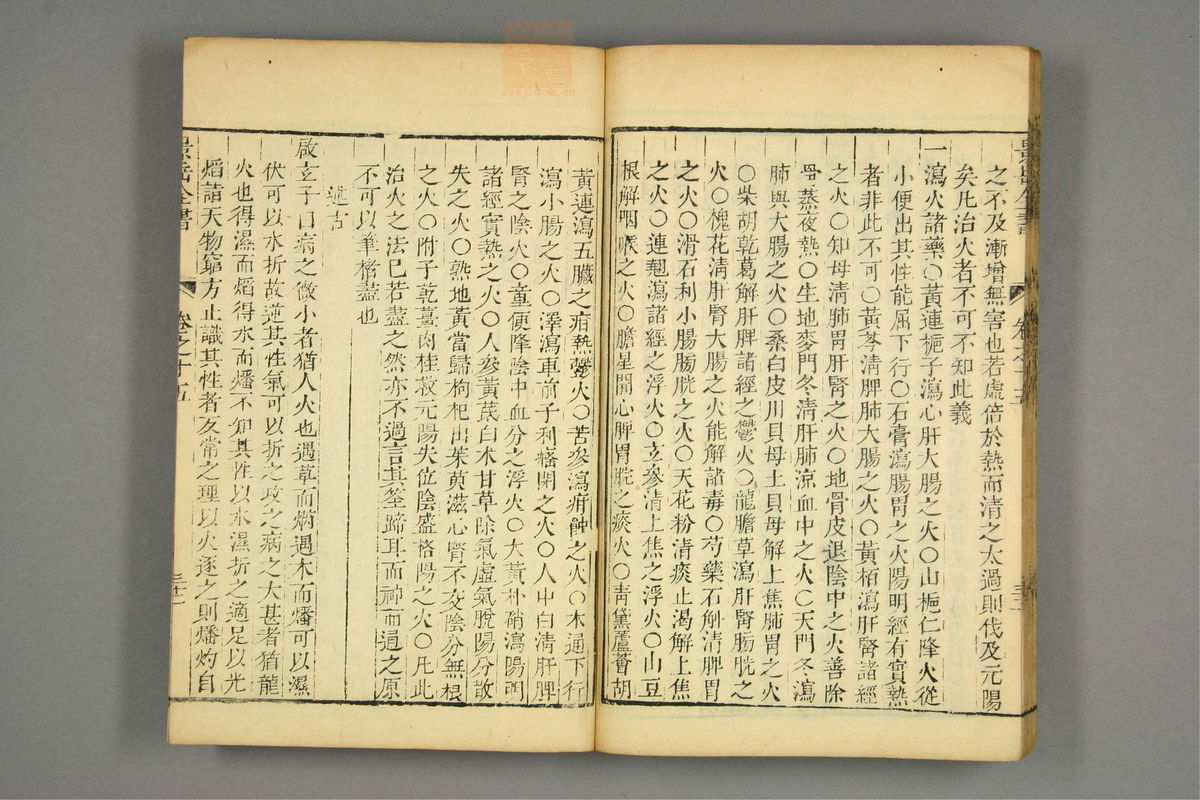 之不及漸增無害也若虛倍於熱而清之太過則伐及元陽
矣凡治火者不可不知此義
一瀉火諸藥○黃連梔子瀉心肝大腸之火○山梔仁降火從
小便出其性能屈下行○石膏瀉腸胃之火陽明經有實熱
者非此不可○黃芩清脾肺大腸之火○黃栢瀉肝腎諸經
之火○知母清肺胃肝腎之火○地骨皮退陰中之火善除
骨蒸夜熱○生地麥門冬清肝肺涼血中之火○天門冬瀉
肺與大腸之火○桑白皮川貝母土貝母解上焦肺胃之火
○柴胡乾葛解肝脾諸經之鬱火○龍膽草瀉肝腎膀胱之
火○槐花清肝腎大腸之火能解諸毒○芍藥石斛清脾胃
之火○滑石利小腸膀胱之火○天花粉清痰止渴解上焦
之火○連翹瀉諸經之浮火○玄參清上焦之浮火○山豆
根解咽喉之火○膽星開心脾胃脘之痰火○青黛蘆薈胡
黃連瀉五臟之疳熱鬱火○苦參瀉疳蝕之火○木通下行
瀉小腸之火○澤瀉車前子利癃閉之火○人中白清肝脾
腎之陰火○童便降陰中血分之浮火○大黃朴硝瀉陽明
諸經實熱之火○人參黃芪白朮甘草除氣虛氣脫陽分散
失之火○熟地黃當歸枸杞山茱萸滋心腎不交陰分無根
之火○附子乾薑肉桂救元陽失位陰盛格陽之火○凡此
治火之法已若盡之然亦不過言其筌蹄耳而神而通之原
不可以筆楮盡也
述古
啟玄子曰病之微小者猶人火也遇草而焫遇木而燔可以濕
伏可以水折故逆其性氣可以折之攻之病之大甚者猶龍
火也得濕而焰得水而燔不知其性以水濕折之適足以光
焰詣天物窮方止識其性者反常之理以火逐之則燔灼自
景岳全書
卷之十五